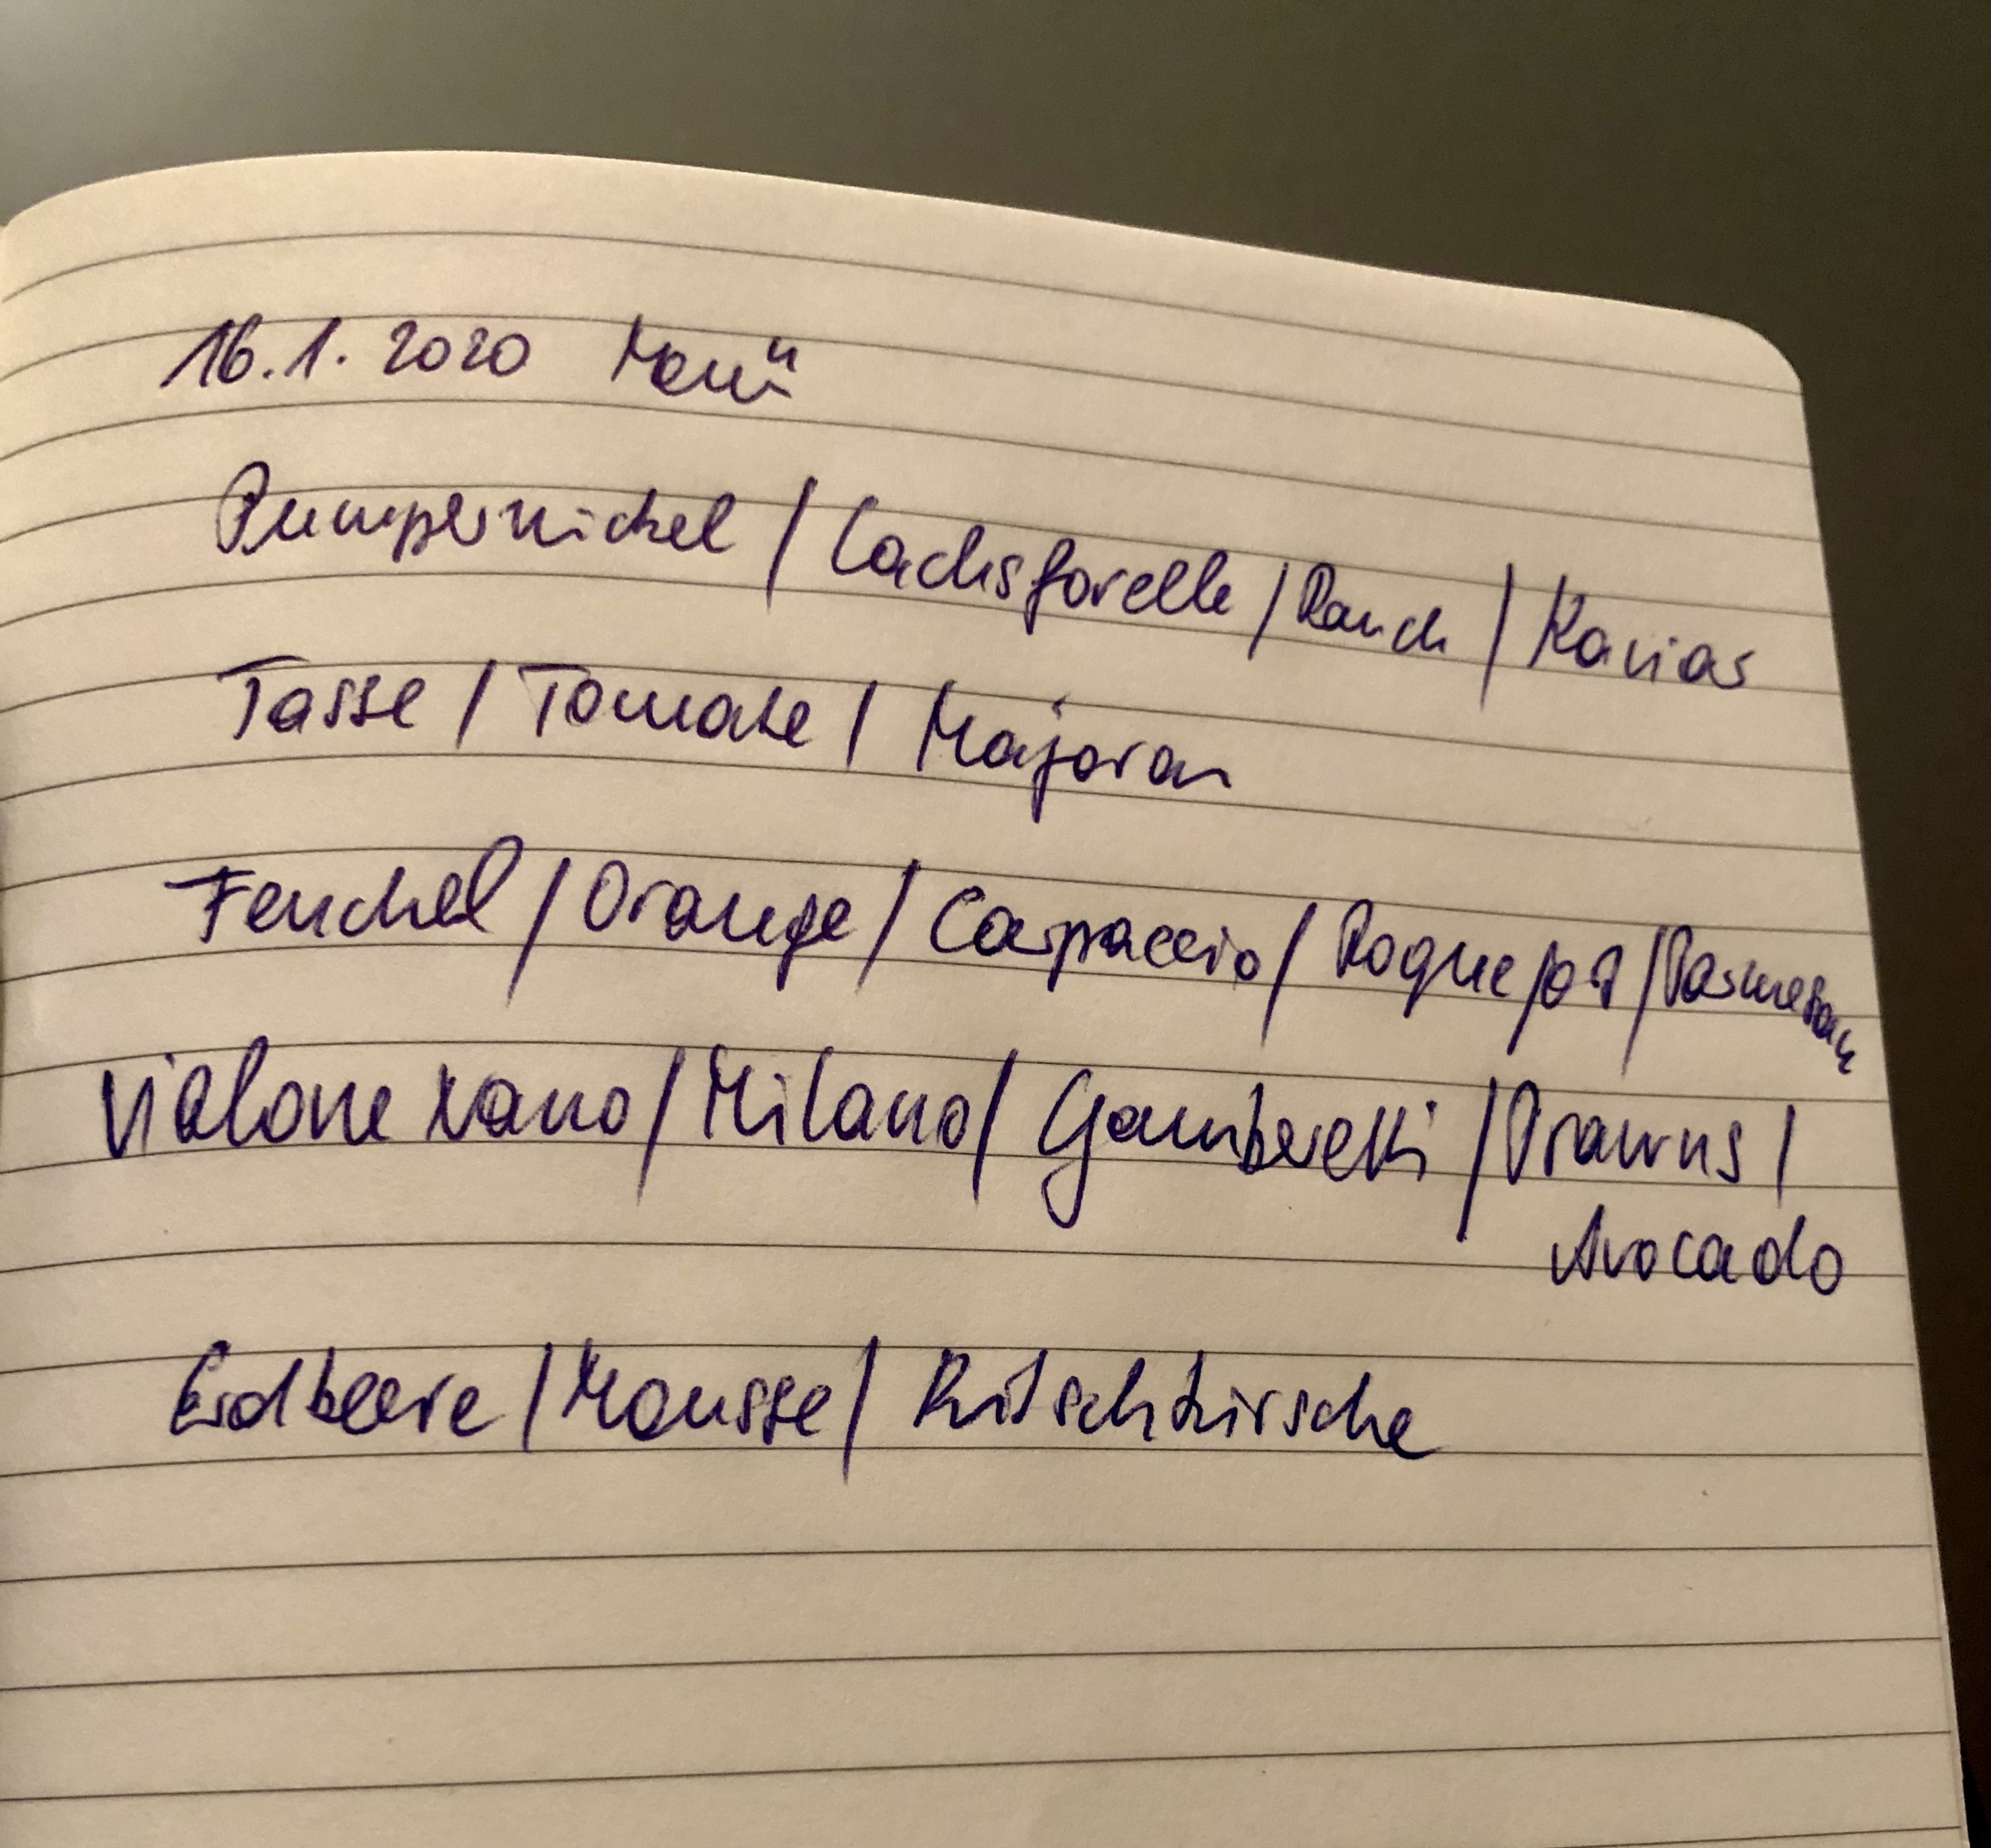 16.1.2020 Menü
Pumpernickel / Lachsforelle / Rauch / Kaviar
Tasse / Tomate / Majoran
Fenchel / Orange / Carpaccio / Roquefort / Parmesan
Vialone Nano / Milano / Gamberetti / Prawns /
Avocado
Erdbeere / Mousse / Rutschkirsche